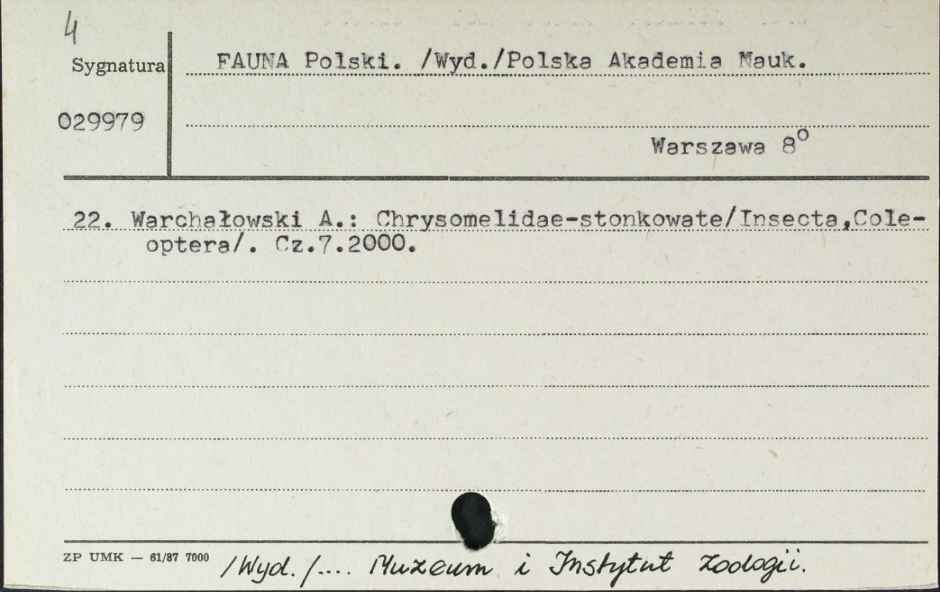 4
Sygnatura
FAUNA Polski. /Wyd./Polska Akademia Nauk.
029979
Warszawa 8º
22. Warchałowski A.: Chrysomelidae-stonkowate/Insecta,Cole-
optera/. Cz.7.2000.
ZP UMK — 61/87 7000
/Wyd./.... Muzeum i Instytut Zoologii.